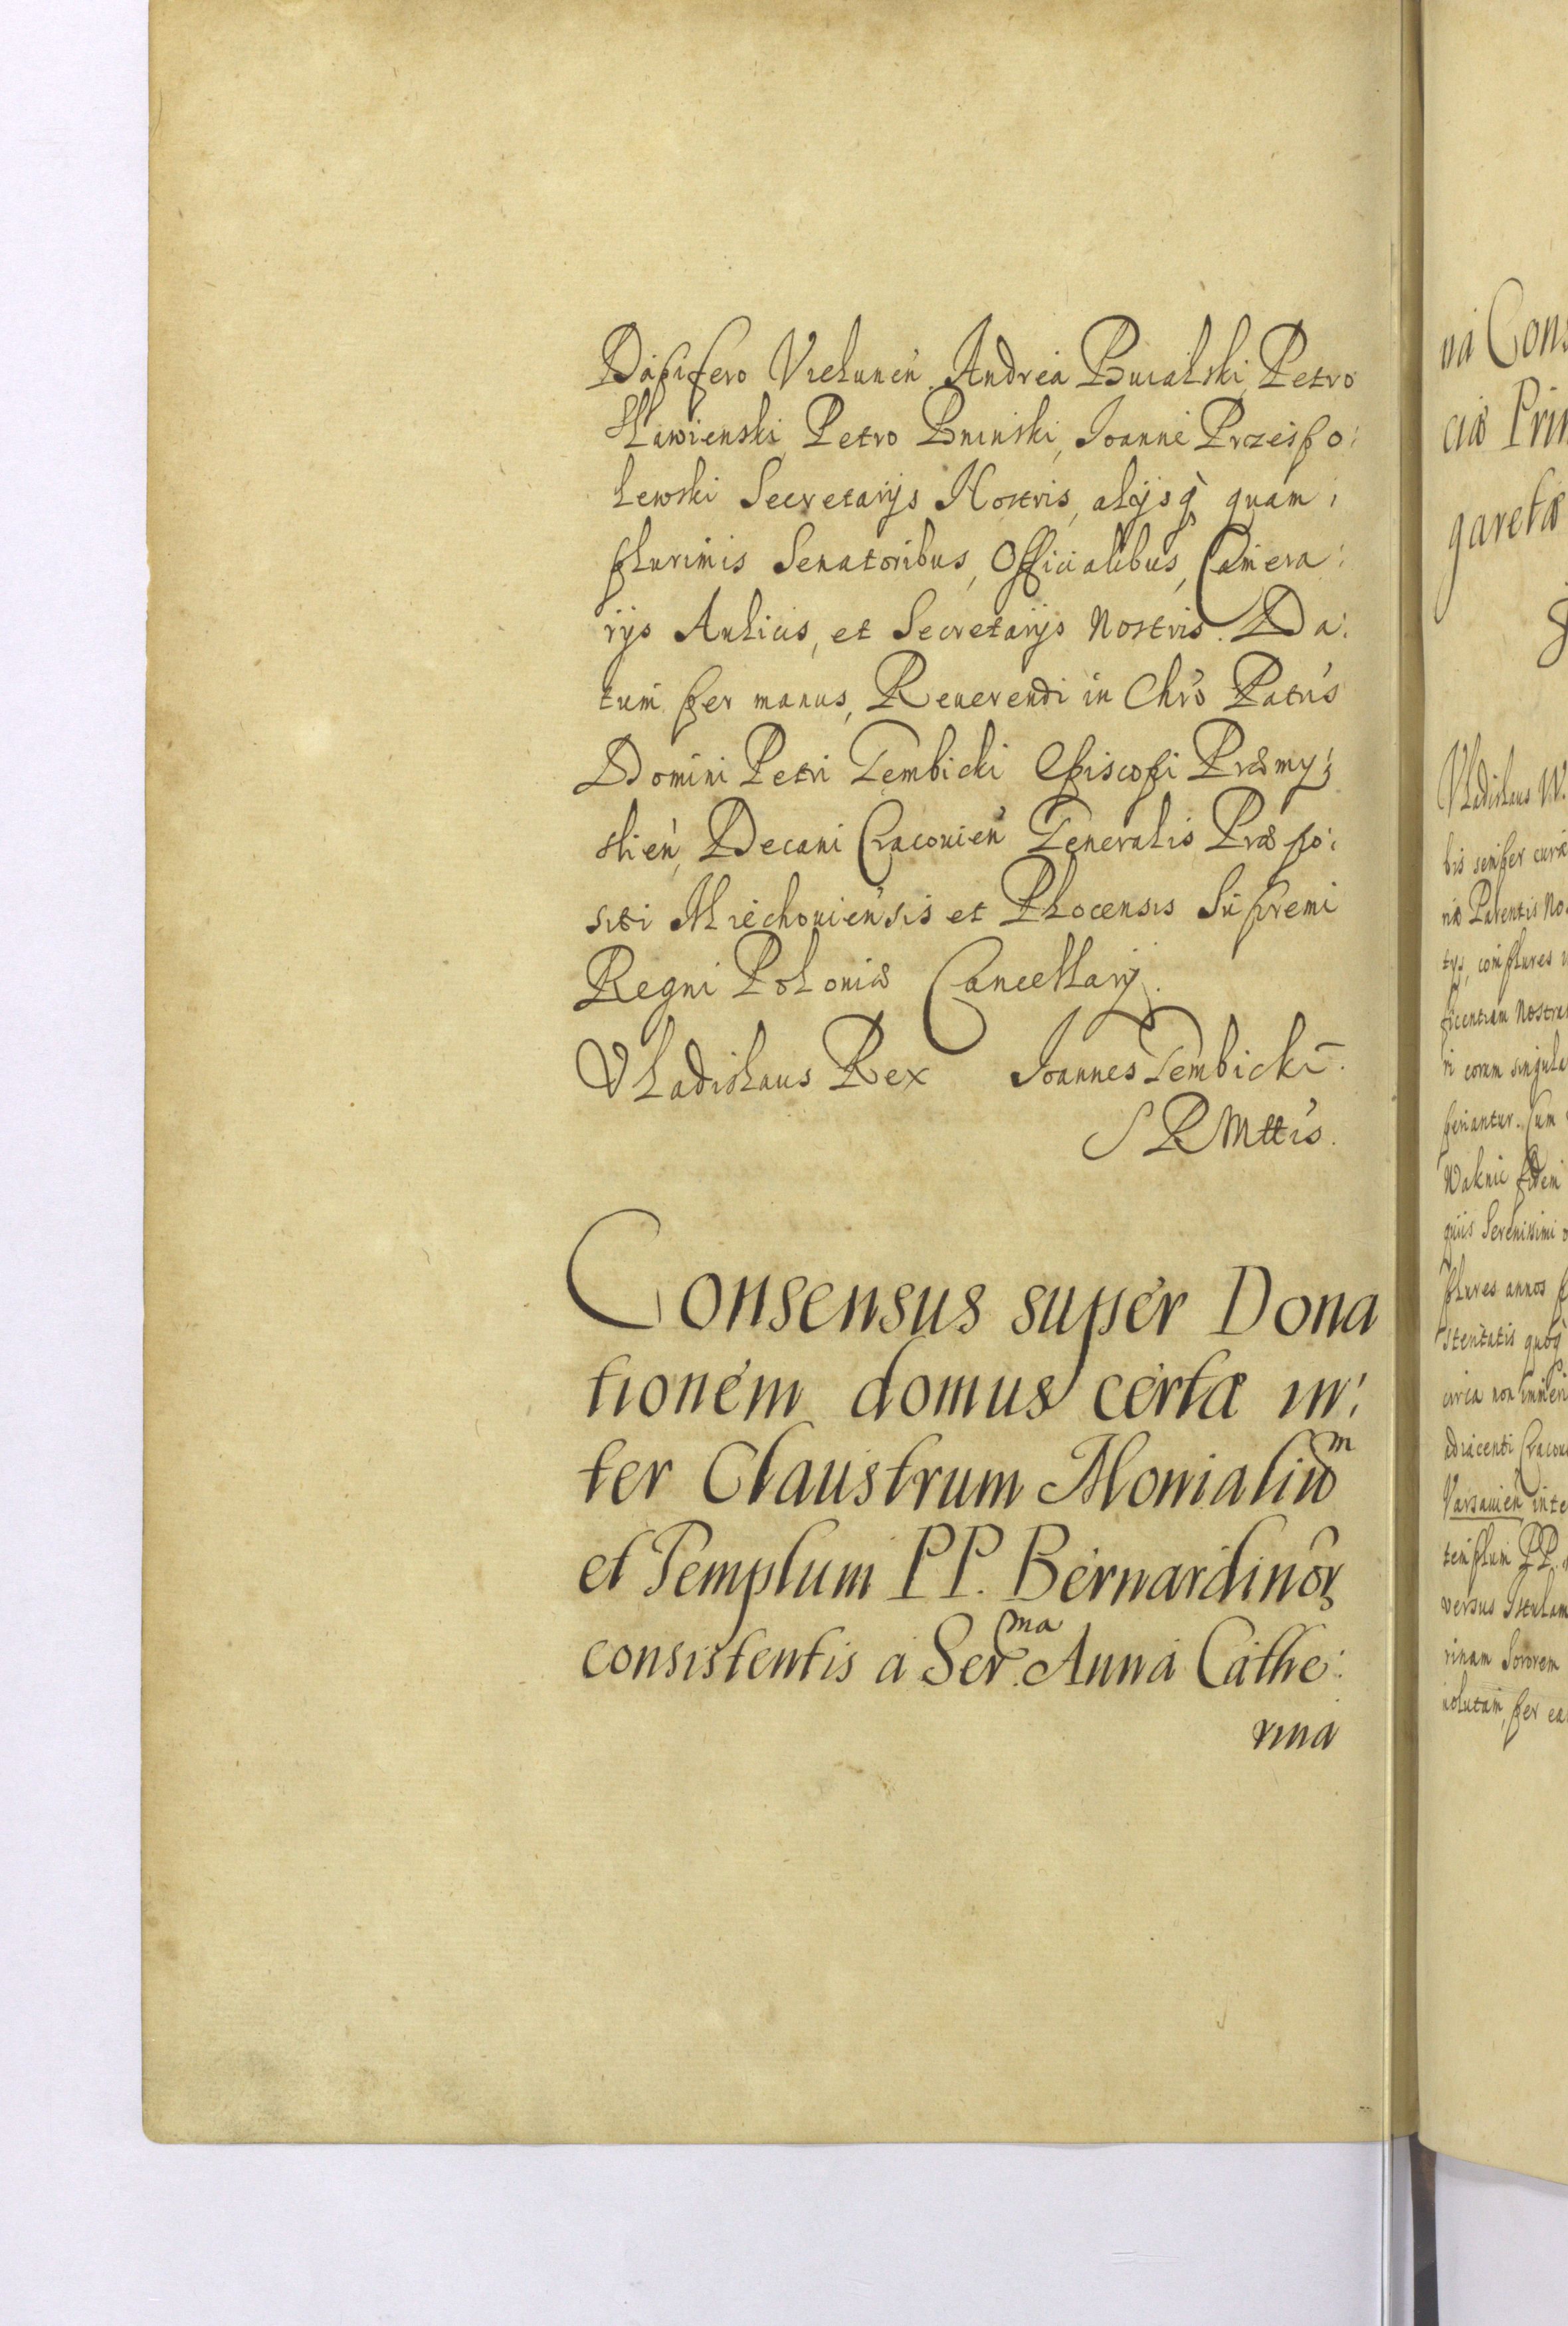 Dapifero Vielunen̄. Andrea Bucalski, Petro
Petro Bninski, Joanne Przeispo:
lewski Secretarijs Nostris, alijsq̀ quam:
plurimis Senatoribus, Officialibus, Camera:
rijs Aulicis, et Secretarijs Nostris. Da:
tum per manus, Reuerendi in Chrō Patris
Domini Petri Gembicki Episcopi Præmy:
slien̄, Decani Cracouien̄ Generalis Præpo:
siti Miechouiensis et Plocensis Supremi
Regni Poloniæ Cancellarij.
Vladislaus Rex Joannes Gembicki.
S R Mttis.
Consensus super Dona
tionem domus certæ in:
ter Claustrum Monialiū^m
et Templum PP. Bernardinoꝝ
consistentis a Ser.^ma Anna Cathe:
rina
na Cons
ciæ Prin
garetæ
Vladislaus IV.
bis semper curæ
ræ Parentis No
tys, complures
ficentiam Nostra
ri eorum singula
feriantur. Cum
quis Serenissimi
plures annos
circa non immeri
adiacenti Cracou
Varsauien inte
templum PP.
versus Istulam
rinam Sororem
uolutam, per ea